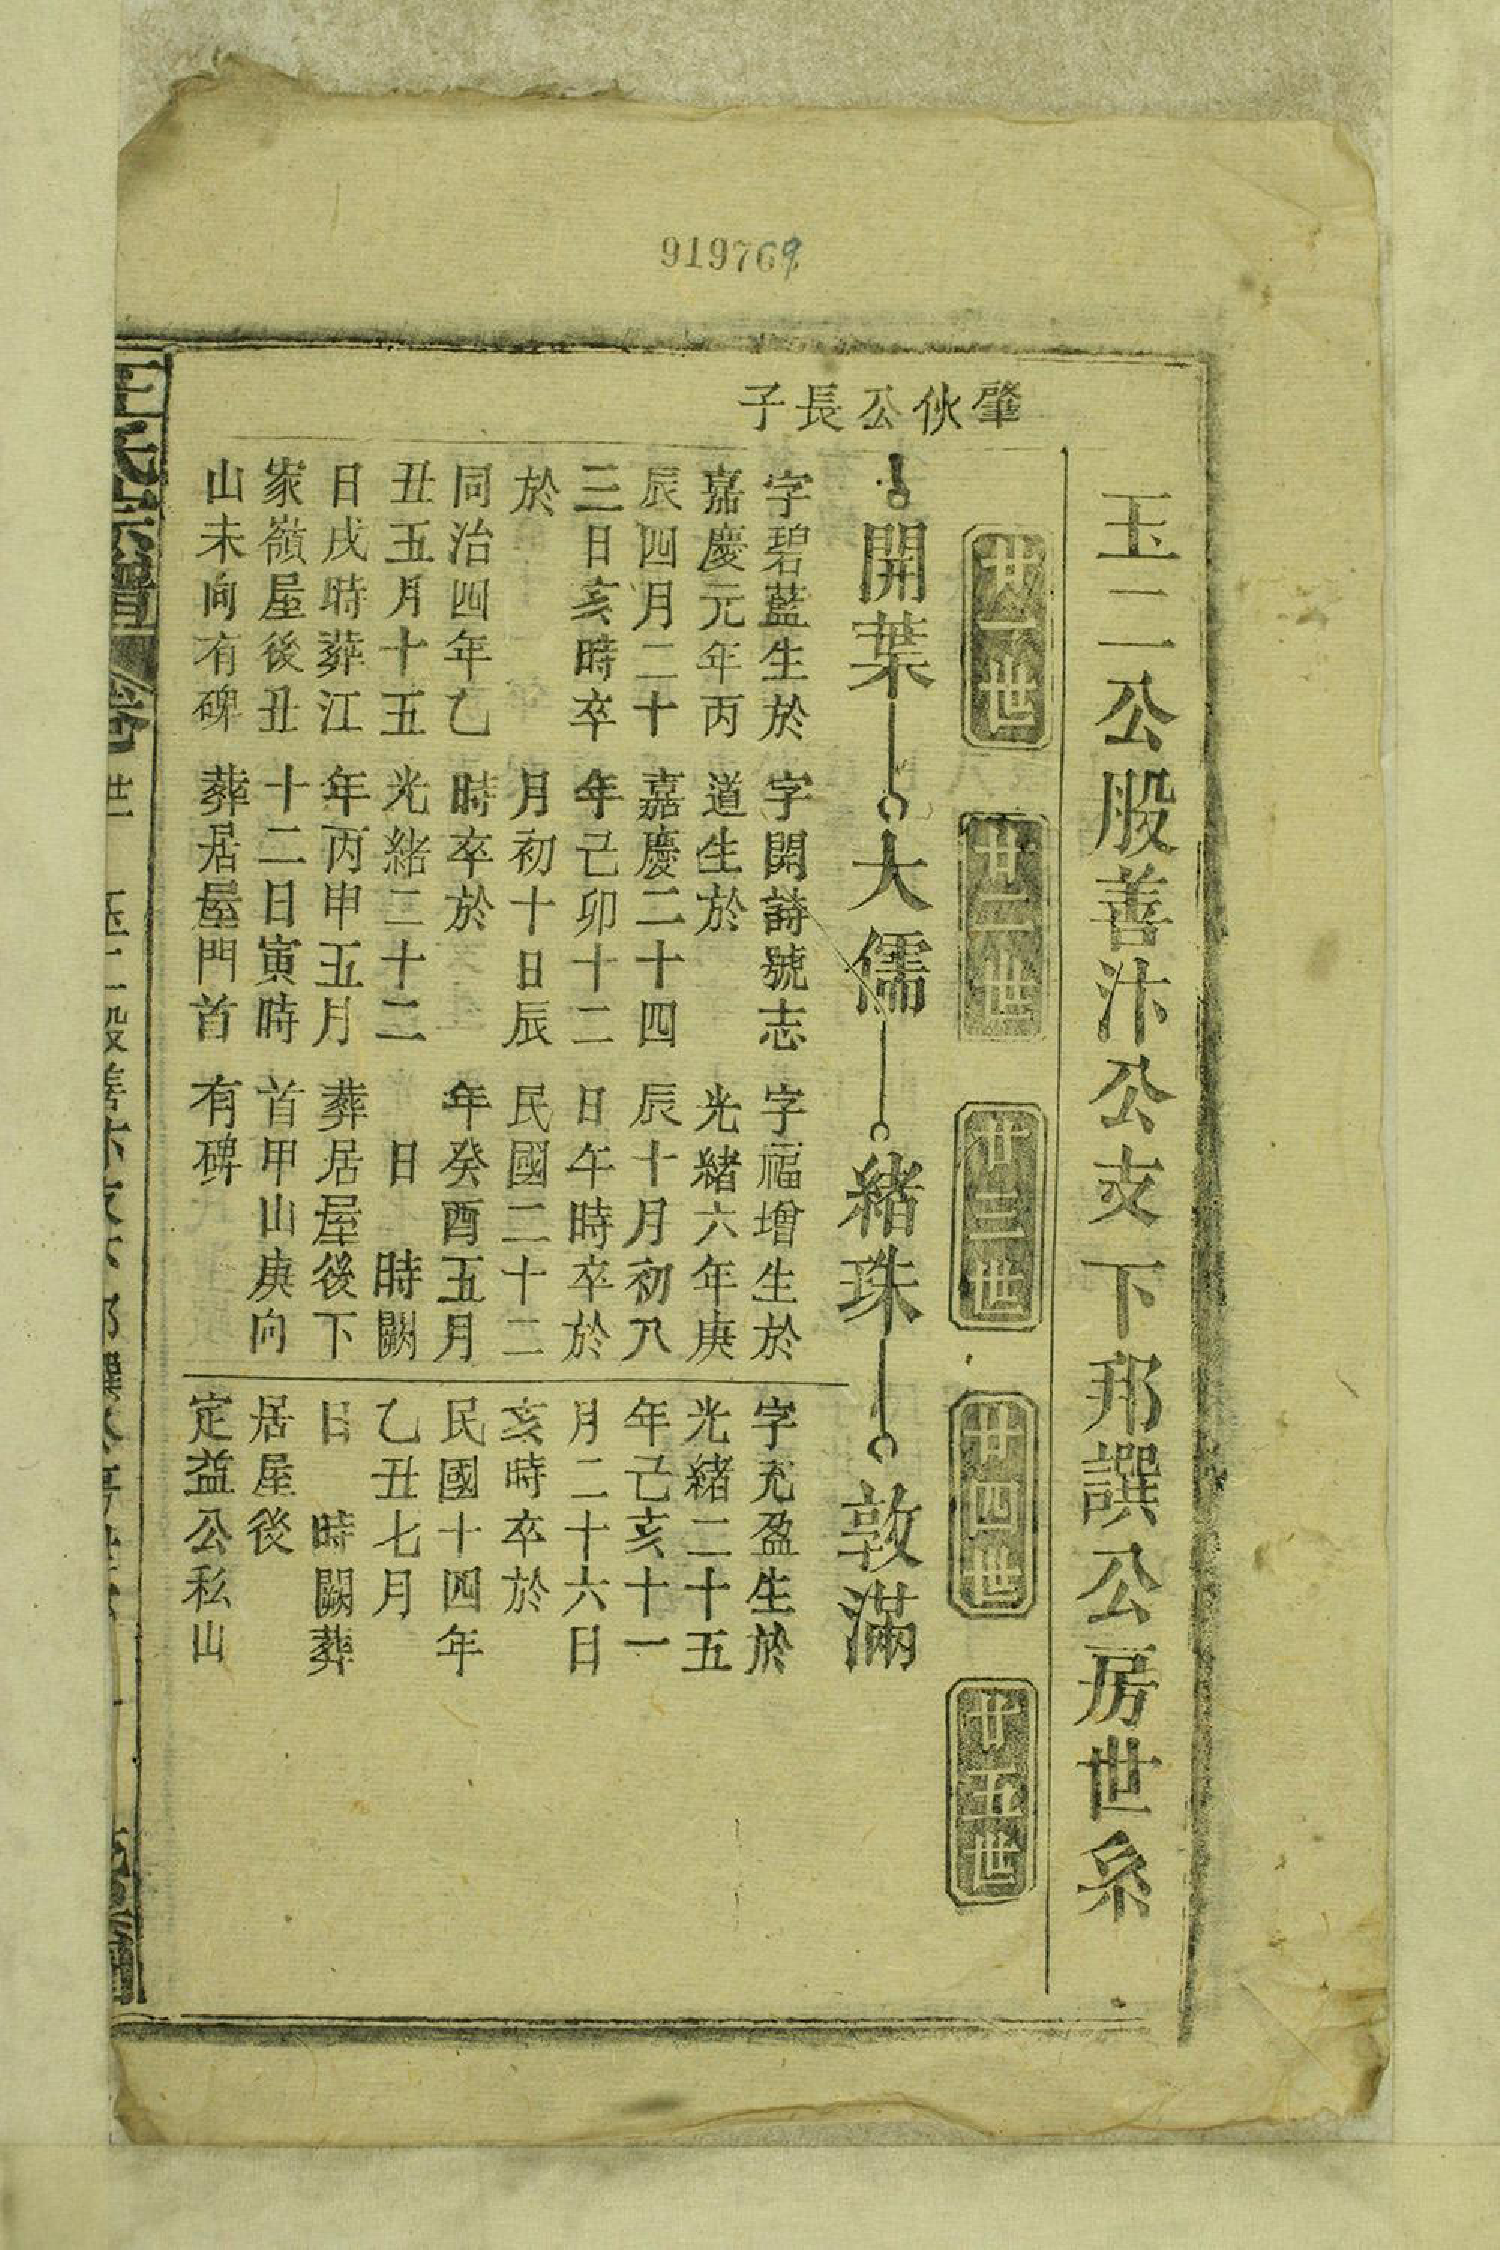 919769
玉二公股善汴公支下邦譔公房世系
廿一世
廿二世
廿三世
廿四世
廿五世
肇伙公長子
開葉
大儒
緒珠
敦滿
字碧藍生於
嘉慶元年丙
辰四月二十
三日亥時卒
於
同治四年乙
丑五月十五
日戌時葬江
家嶺屋後丑
山未向有碑
字開詩號志
道生於
嘉慶二十四
年己卯十二
月初十日辰
時卒於
光緒二十二
年丙申五月
十二日寅時
葬居屋門首
字福增生於
光緒六年庚
辰十月初八
日午時卒於
民國二十二
年癸酉五月
日 時闕
葬居屋後下
首甲山庚向
有碑
字充盈生於
光緒二十五
年己亥十一
月二十六日
亥時卒於
民國十四年
乙丑七月
日 時闕葬
居屋後
定益公私山
王氏宗譜
卷
世